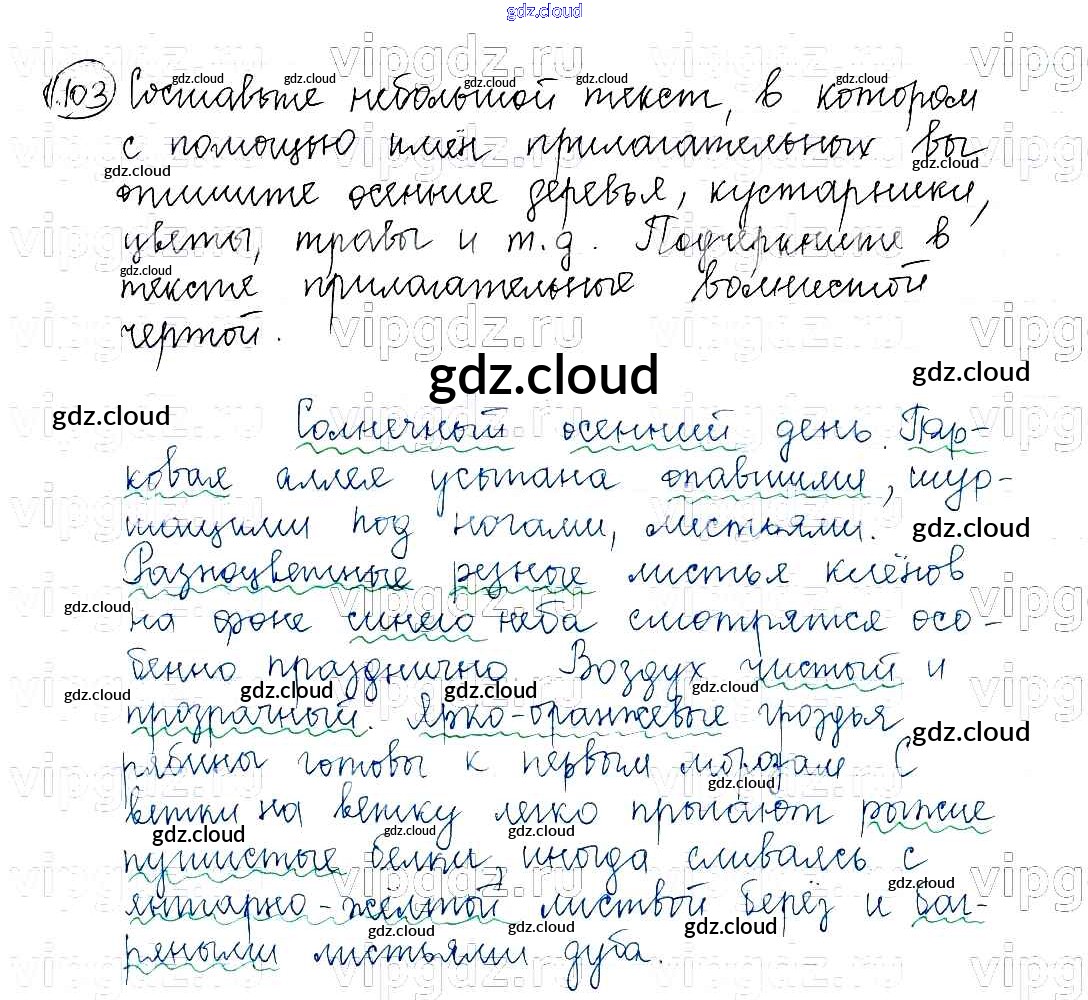 gdz.cloud
1.103 Составьте небольшой текст, в котором
с помощью имён прилагательных вы
опишите осенние деревья, кустарники,
цветы, травы и т.д. Подчеркните в
тексте прилагательные волнистой
чертой.
gdz.cloud
Солнечный осенний день. Пар-
ковая аллея усыпана опавшими, шур-
шащими под ногами, листьями.
Разноцветные резные листья клёнов
на фоне синего неба смотрятся осо-
бенно празднично. Воздух чистый и
прозрачный. Ярко-оранжевые гроздья
рябины готовы к первым морозам. С
ветки на ветку легко прыгают рыжие
пушистые белки, иногда сливаясь с
янтарно-жёлтой листвой берёз и баг-
ряными листьями дуба.